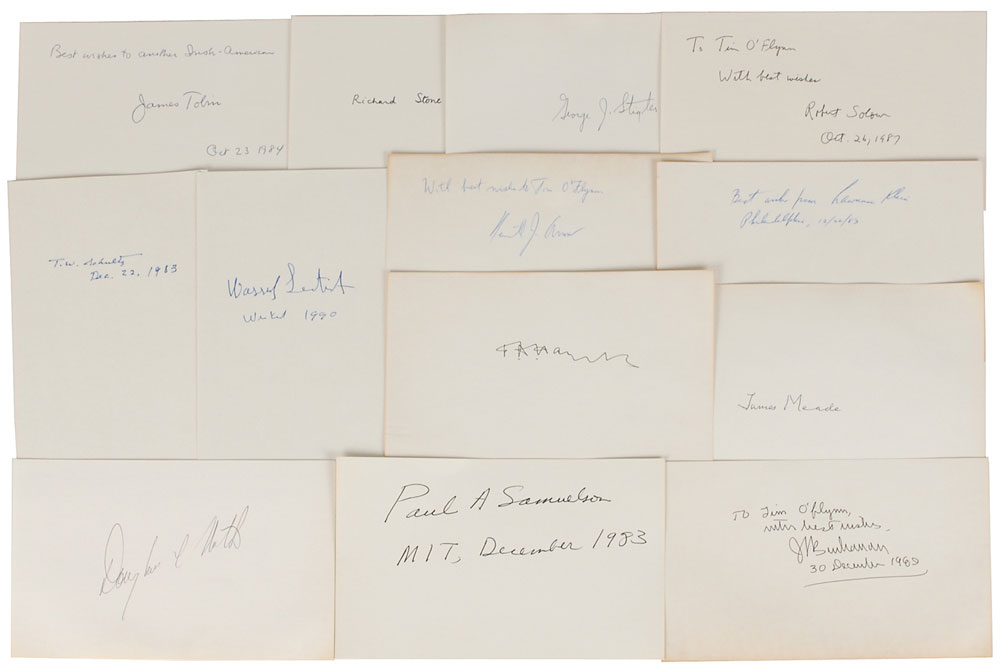 Best wishes to another Irish-American
James Tobin
Oct 23 1984
Richard Stone
George J. Stigler
To Tim O'Flynn
With best wishes
Robert Solow
Oct. 26, 1987
With best wishes to Tim O'Flynn
Kenneth J. Arrow
Best wishes from Lawrence Klein
Philadelphia, 12/20/83
T.W. Schultz
Dec. 22, 1983
Wassily Leontief
1990
James Meade
Douglass C North
Paul A Samuelson
MIT, December 1983
To Tim O'Flynn,
with best wishes.
JMBuchanan
30 December 1989